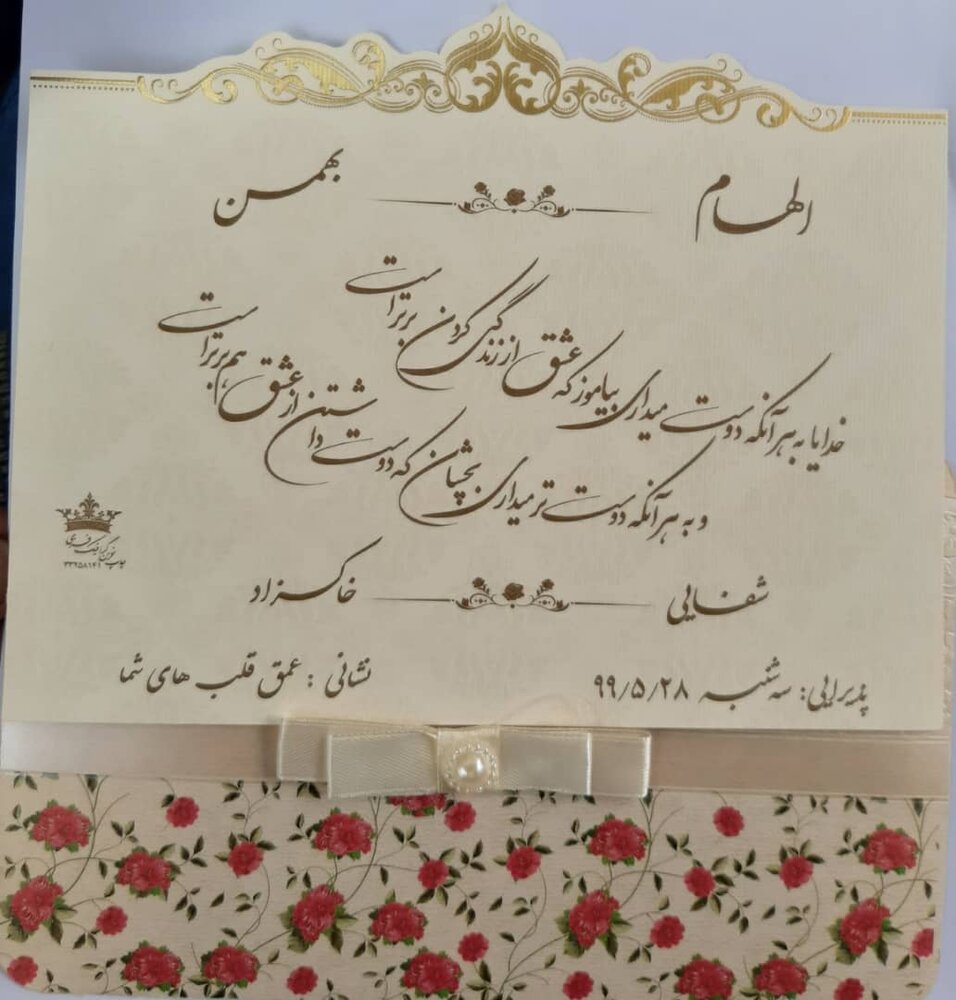 الهام بهمن
خدایا به هر آنکه دوست میداری بیاموز که عشق از زندگی کردن برتر است
و به هر آنکه دوست تر میداری بچشان که دوست داشتن از عشق هم برتر است
شفایی خاکسزاد
پذیرایی: سه شنبه ۹۹/۵/۲۸ نشانی : عمق قلب های شما
چاپ
۳۳۲۵۸۱۴۱